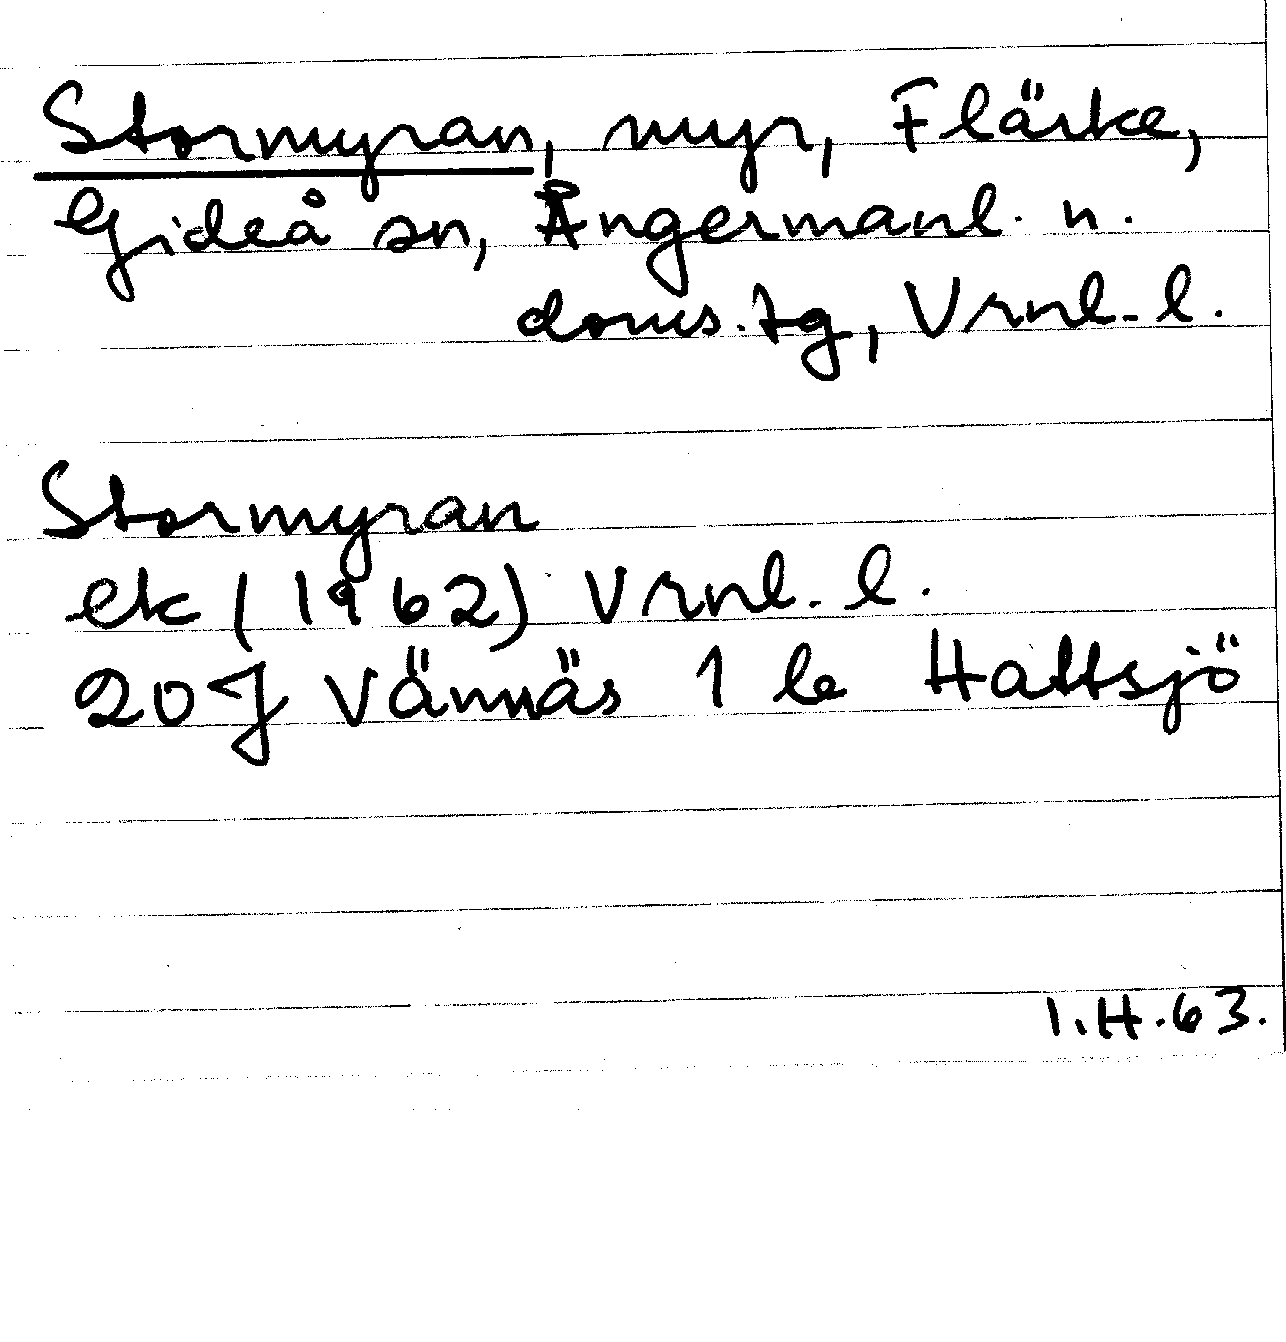 Stormyran, myr, Flärke,
Gideå sn, Ångermanl. n.
doms.tg, Vrnl. l.
Stormyran
ek (1962) Vrnl. l.
20J Vännäs 1 be Hattsjö
I.H.63.